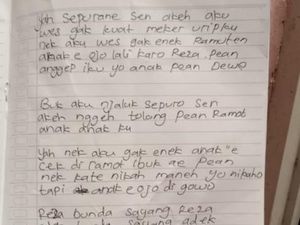 Yah Sepurane Sen akeh aku
wes gak kuat meker uripku
nek aku wes gak enek Ramuten
anak e ojo lali karo Reza. Pean
anggep iku yo anak pean Dewe
Buk aku njaluk Sepuro Sen
akeh nggeh tolong Pean Ramot
anak anak ku
Yah nek aku gak enek anak"e
cek di ramot ibuk ae Pean
nek kate nikah maneh yo nikaho
tapi anak e ojo di gowo
Reza bunda sayang Reza
bunda sayang adek